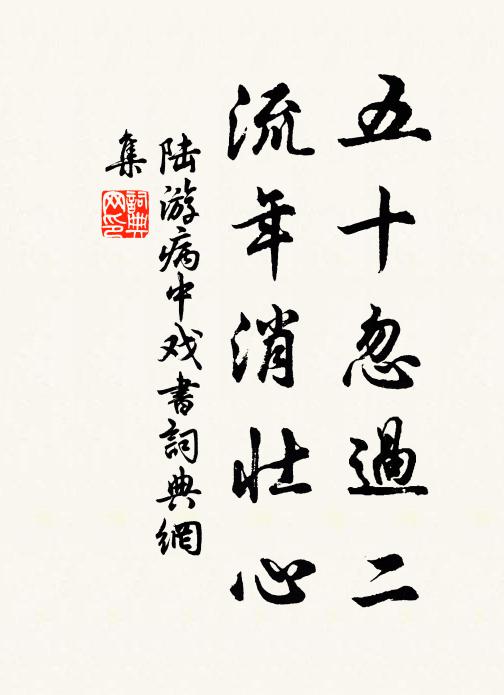 五十忽過二
流年消壮心
陆游病中戏書詞典網
集
詞典网印